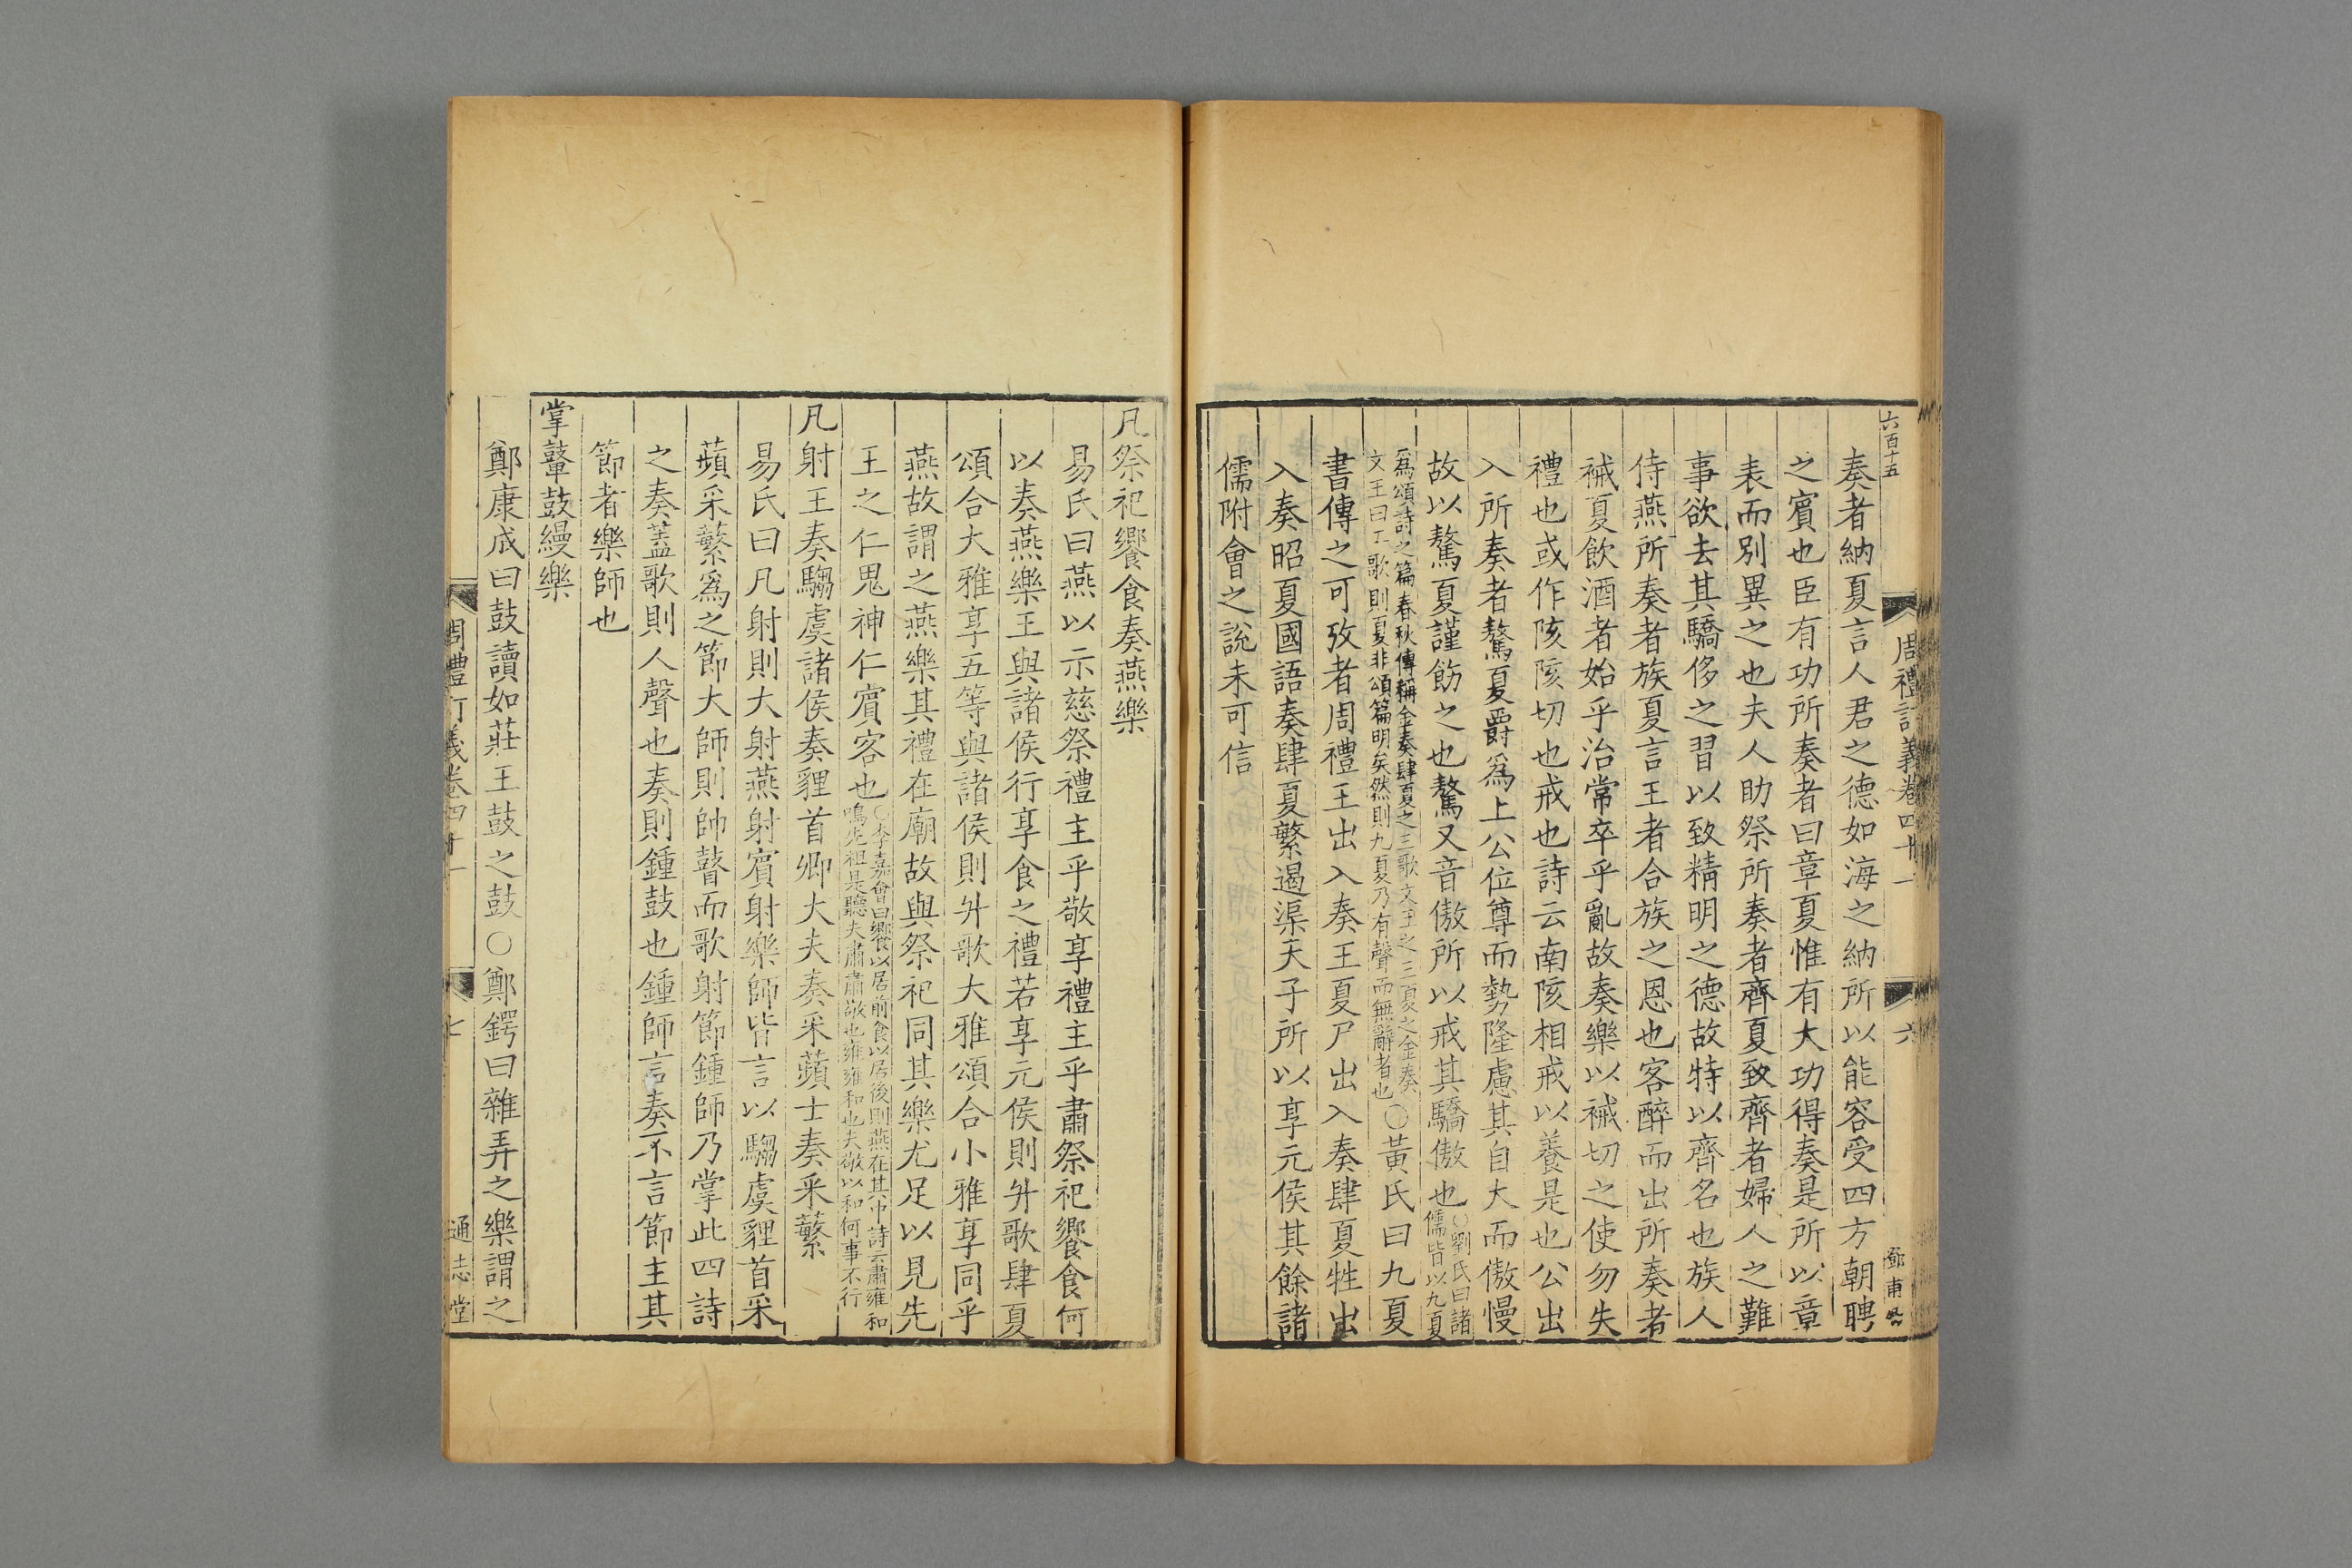 六百十五
周禮訂義卷四十一
六
鄧甫
奏者納夏言人君之德如海之納所以能容受四方朝聘
之賓也臣有功所奏者曰章夏惟有大功得奏是所以章
表而別異之也夫人助祭所奏者齊夏致齊者婦人之難
事欲去其驕侈之習以致精明之德故特以齊名也族人
侍燕所奏者族夏言王者合族之恩也客醉而出所奏者
祴夏飲酒者始乎治常卒乎亂故奏樂以祴切之使勿失
禮也或作陔陔切也戒也詩云南陔相戒以養是也公出
入所奏者驁夏爵爲上公位尊而勢隆慮其自大而傲慢
故以驁夏謹飭之也驁又音傲所以戒其驕傲也○劉氏曰諸儒皆以九夏
爲頌詩之篇春秋傳稱金奏肆夏之三歌文王之三夏之金奏文王曰工歌則夏非頌篇明矣然則九夏乃有聲而無辭者也○黃氏曰九夏
書傳之可攷者周禮王出入奏王夏尸出入奏肆夏牲出
入奏昭夏國語奏肆夏繁遏渠天子所以享元侯其餘諸
儒附會之說未可信
凡祭祀饗食奏燕樂
易氏曰燕以示慈祭禮主乎敬享禮主乎肅祭祀饗食何
以奏燕樂王與諸侯行享食之禮若享元侯則升歌肆夏
頌合大雅享五等與諸侯則升歌大雅頌合小雅享同乎
燕故謂之燕樂其禮在廟故與祭祀同其樂尤足以見先
王之仁鬼神仁賓客也○李嘉會曰饗以居前食以居後則燕在其中詩云肅雍和鳴先祖是聽夫肅肅敬也雍雍和也夫敬以和何事不行
凡射王奏騶虞諸侯奏貍首卿大夫奏采蘋士奏采蘩
易氏曰凡射則大射燕射賓射樂師皆言以騶虞貍首采
蘋采蘩爲之節大師則帥瞽而歌射節鍾師乃掌此四詩
之奏蓋歌則人聲也奏則鍾鼓也鍾師言奏不言節主其
節者樂師也
掌鼙鼓縵樂
鄭康成曰鼓讀如莊王鼓之鼓○鄭鍔曰雜弄之樂謂之
周禮訂義卷四十一
七
通志堂